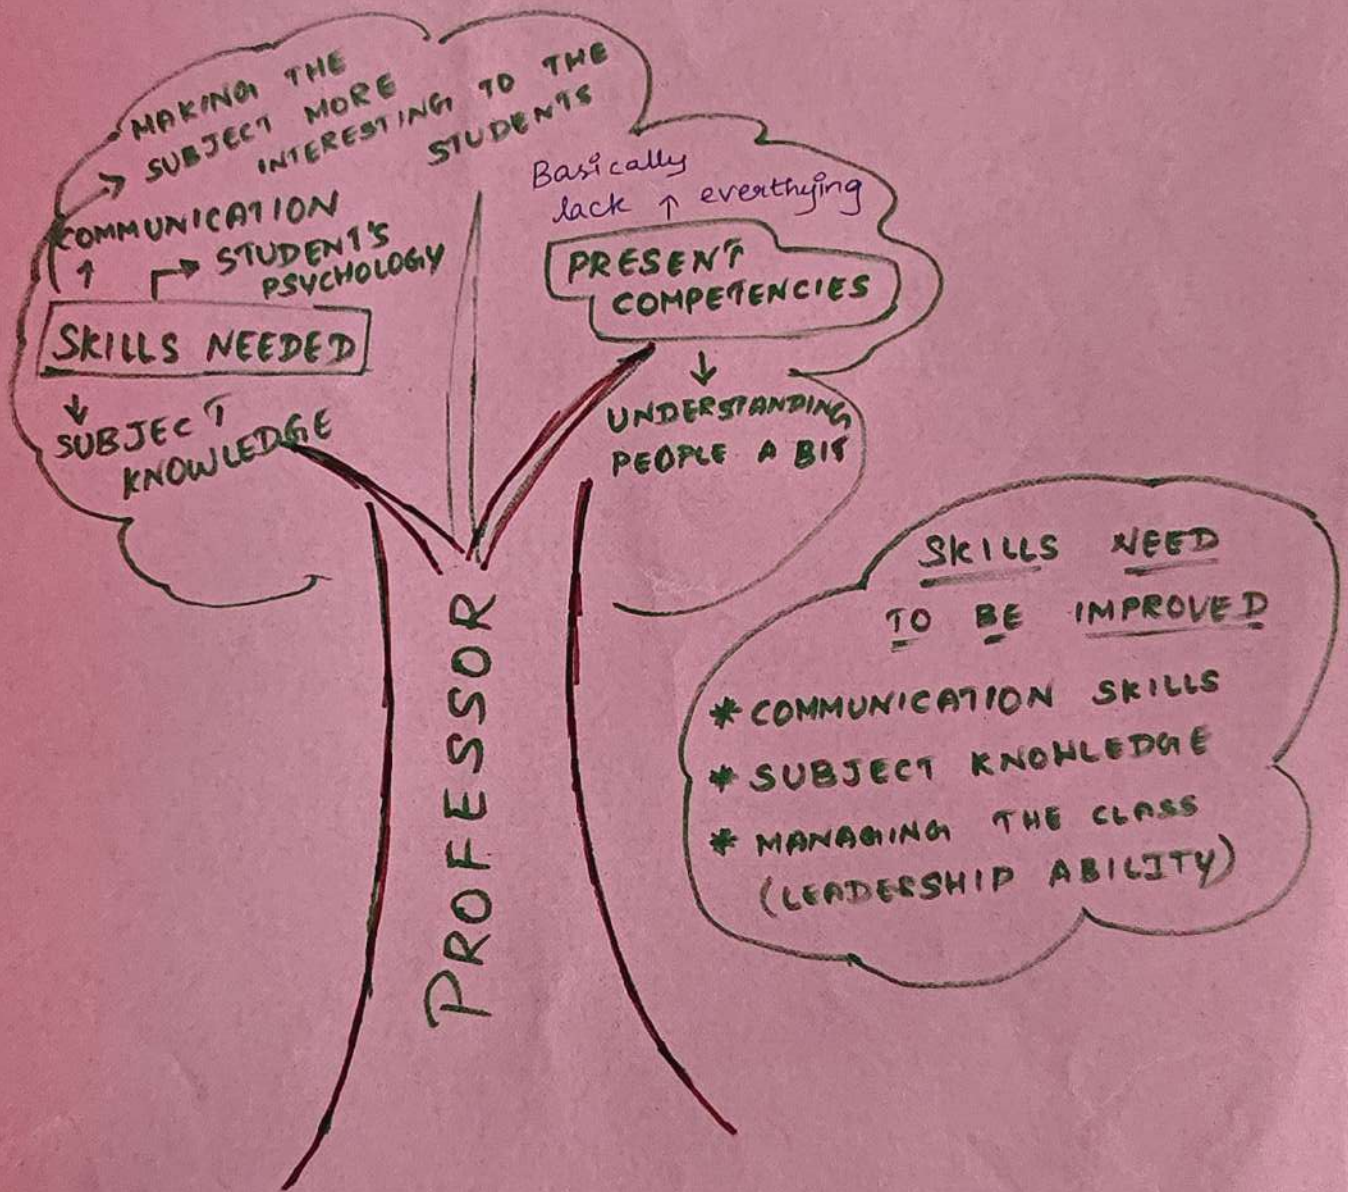 MAKING THE
SUBJECT MORE
INTERESTING TO THE
STUDENTS
COMMUNICATION
STUDENT'S
PSYCHOLOGY
SKILLS NEEDED
SUBJECT
KNOWLEDGE
Basically
lack everthying
PRESENT
COMPETENCIES
UNDERSTANDING
PEOPLE A BIT
PROFESSOR
SKILLS NEED
TO BE IMPROVED
* COMMUNICATION SKILLS
* SUBJECT KNOWLEDGE
* MANAGING THE CLASS
(LEADERSHIP ABILITY)